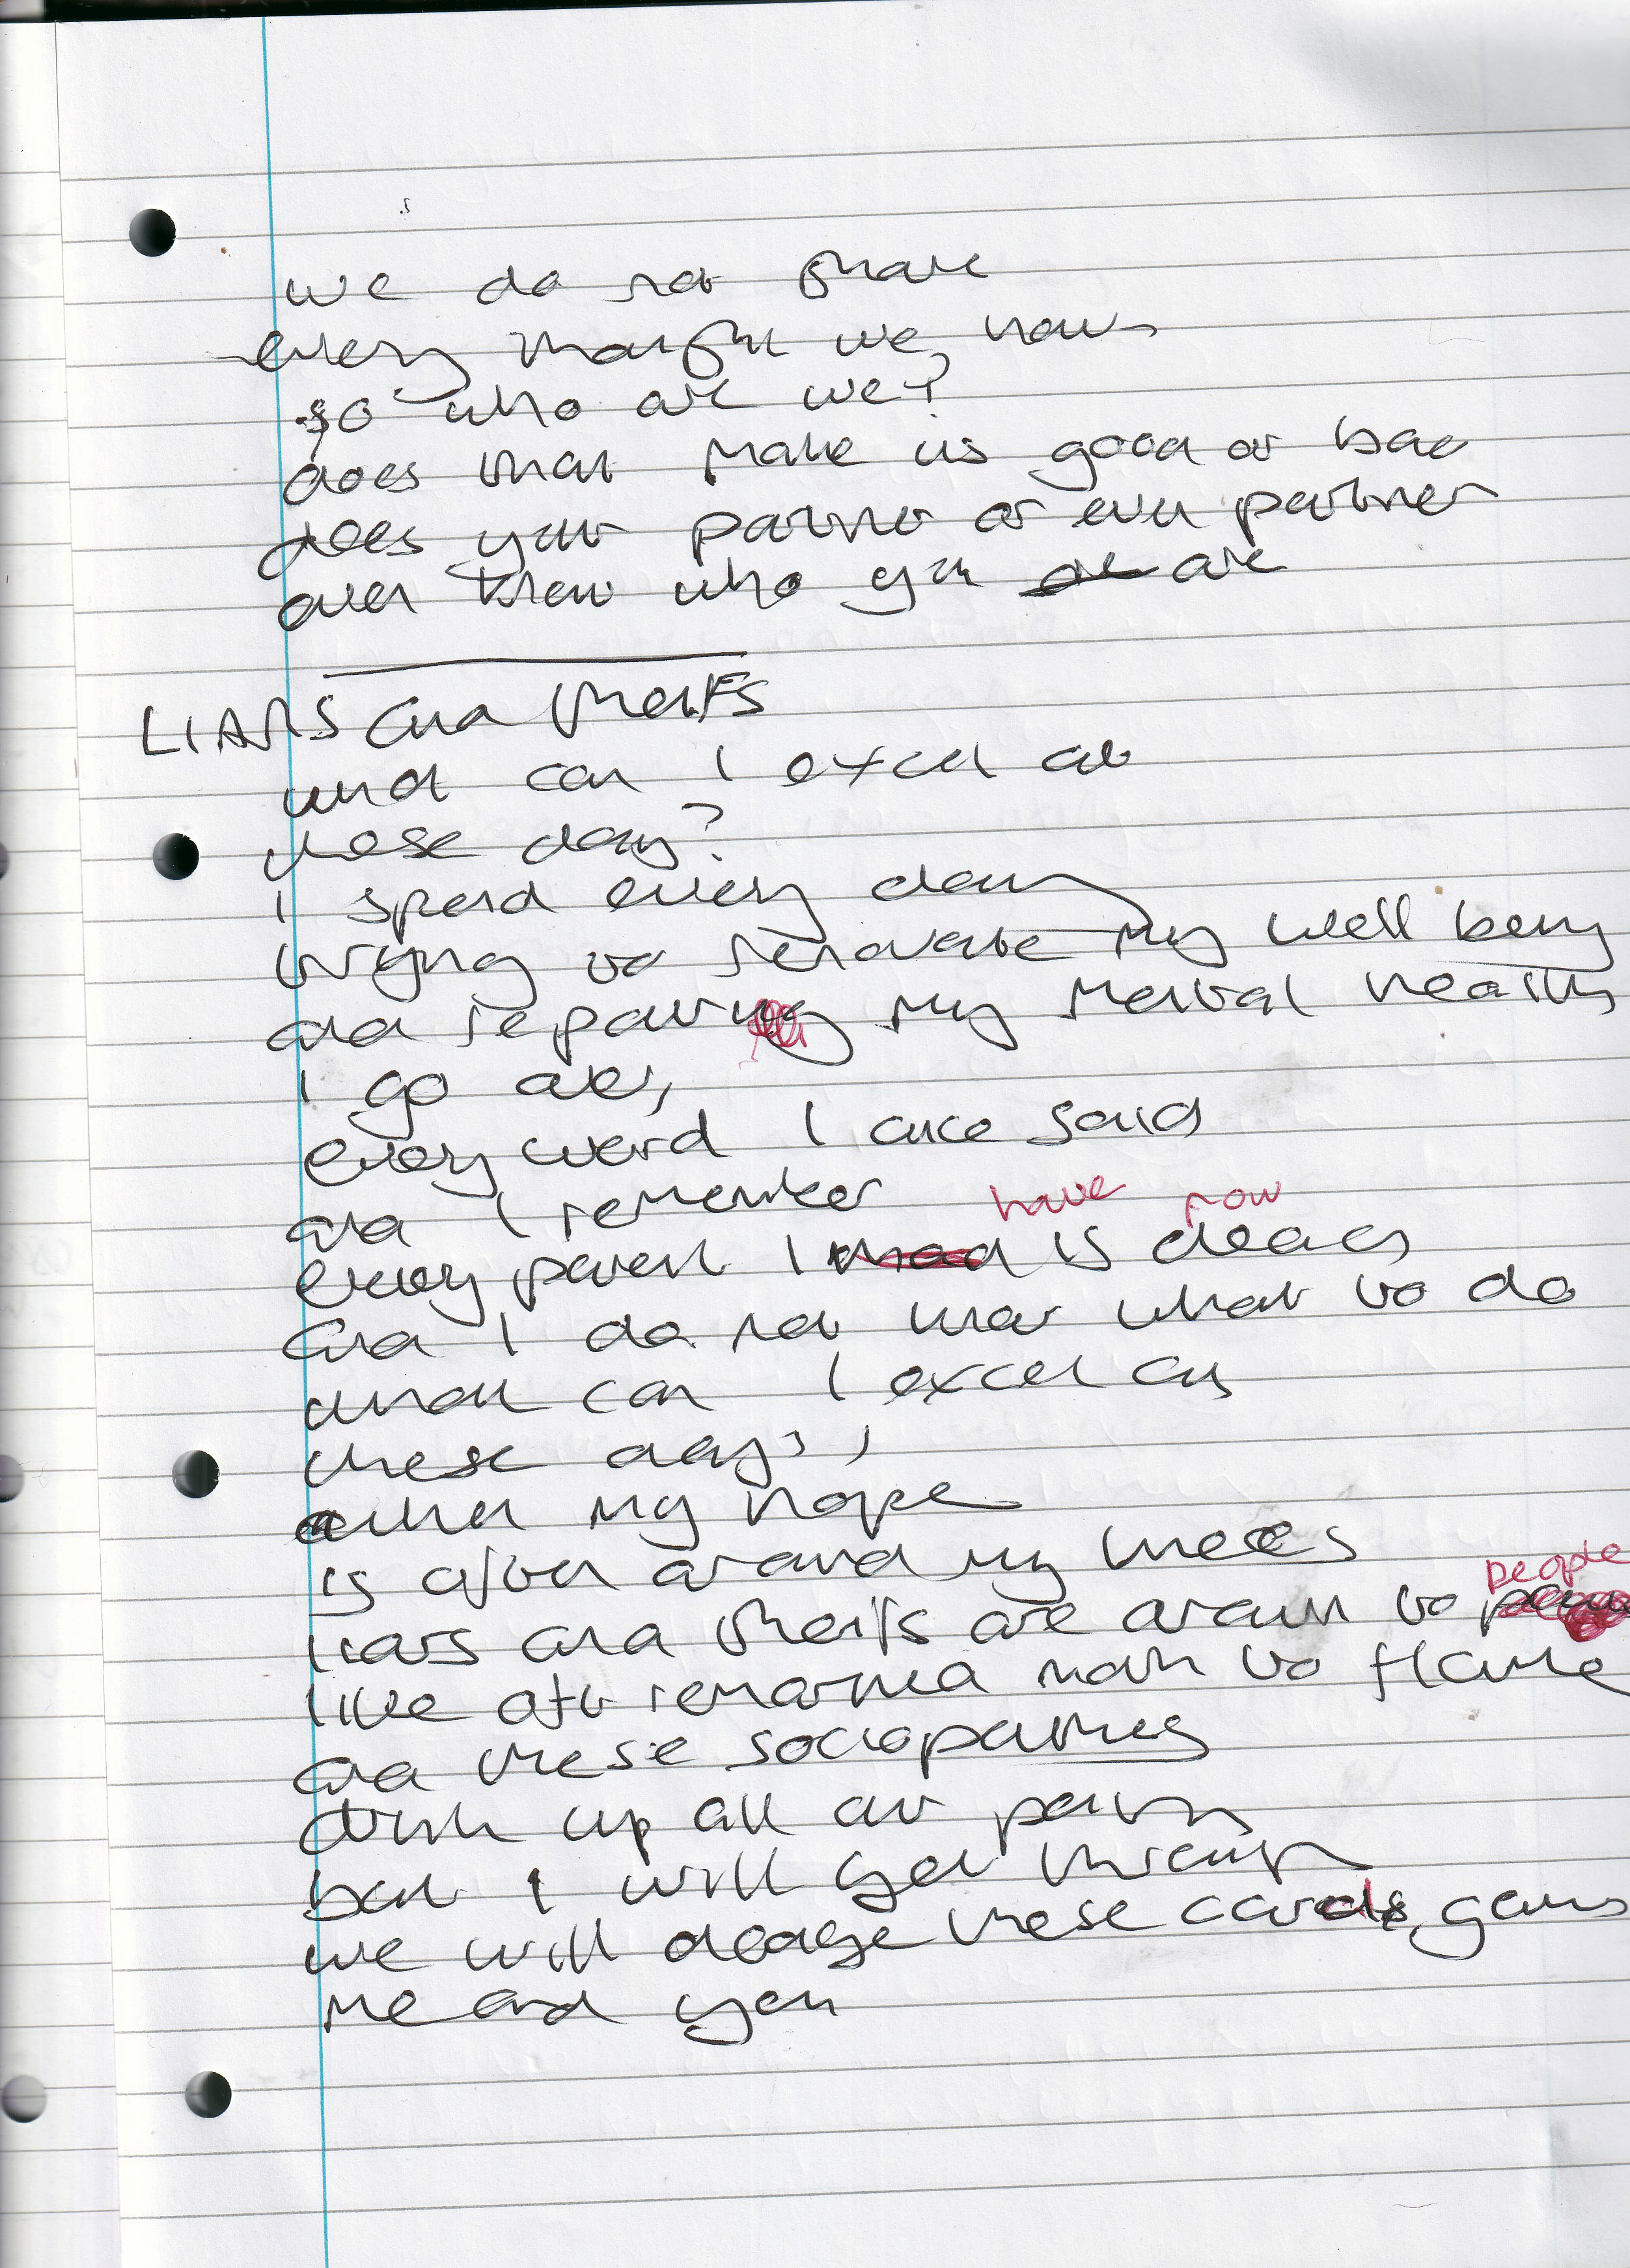 we do not share
every thought we have
so who are we?
does that make us good or bad
does your partner or even partner
ever know who you are
LIARS and theifs
what can I excel at
these day?
I spend every day
trying to renovate my well being
and repairing my mental health
I go over,
every word I once said
and I remember
have now
every parent I had is dead
and I do not know what to do
what can I excel at
these days,
when my hope
is often around my knees
people
liars and theifs are drawn to
like moth to flame
and these sociopaths
drink up all our pain
but I will get through
we will dodge these cards
me and you